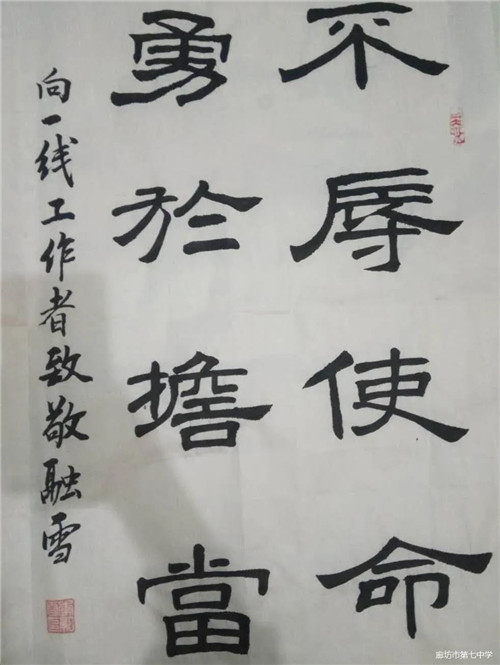 不辱使命
勇於擔當
向一线工作者致敬融雪
廊坊市第七中学